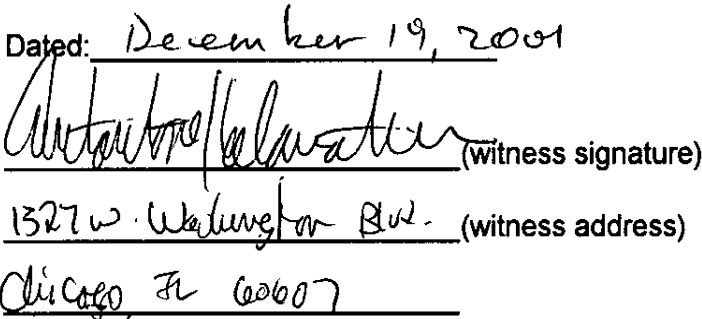 Dated: December 19, 2001
(witness signature)
1327 W. Washington Blvd. (witness address)
Chicago, IL 60607